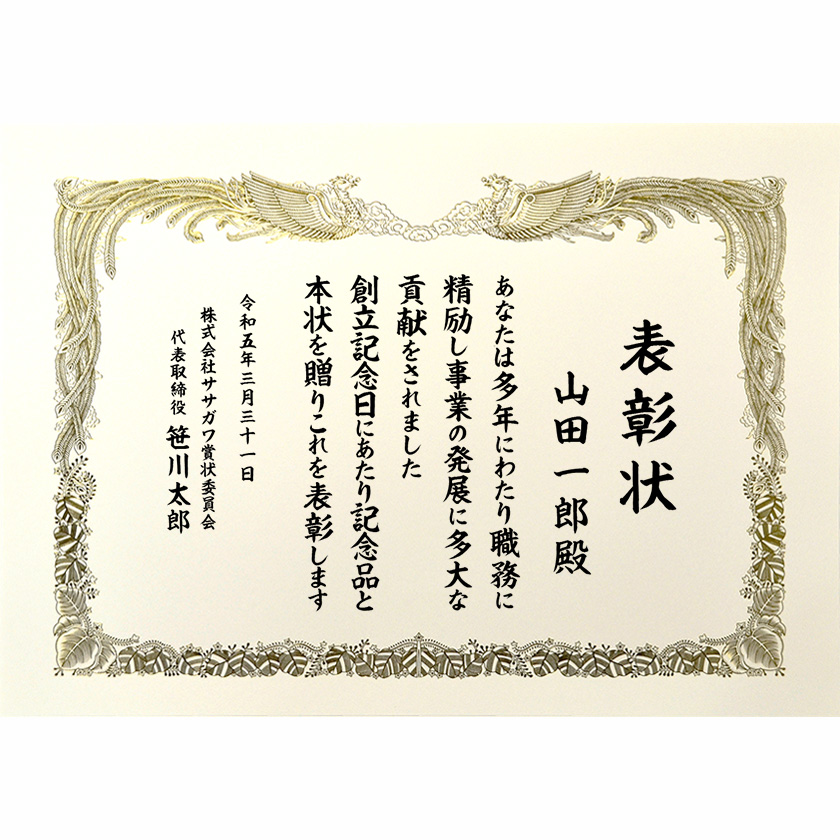 表彰状
山田一郎殿
あなたは多年にわたり職務に
精励し事業の発展に多大な
貢献をされました
創立記念日にあたり記念品と
本状を贈りこれを表彰します
令和五年三月三十一日
株式会社ササガワ賞状委員会
代表取締役 笹川太郎